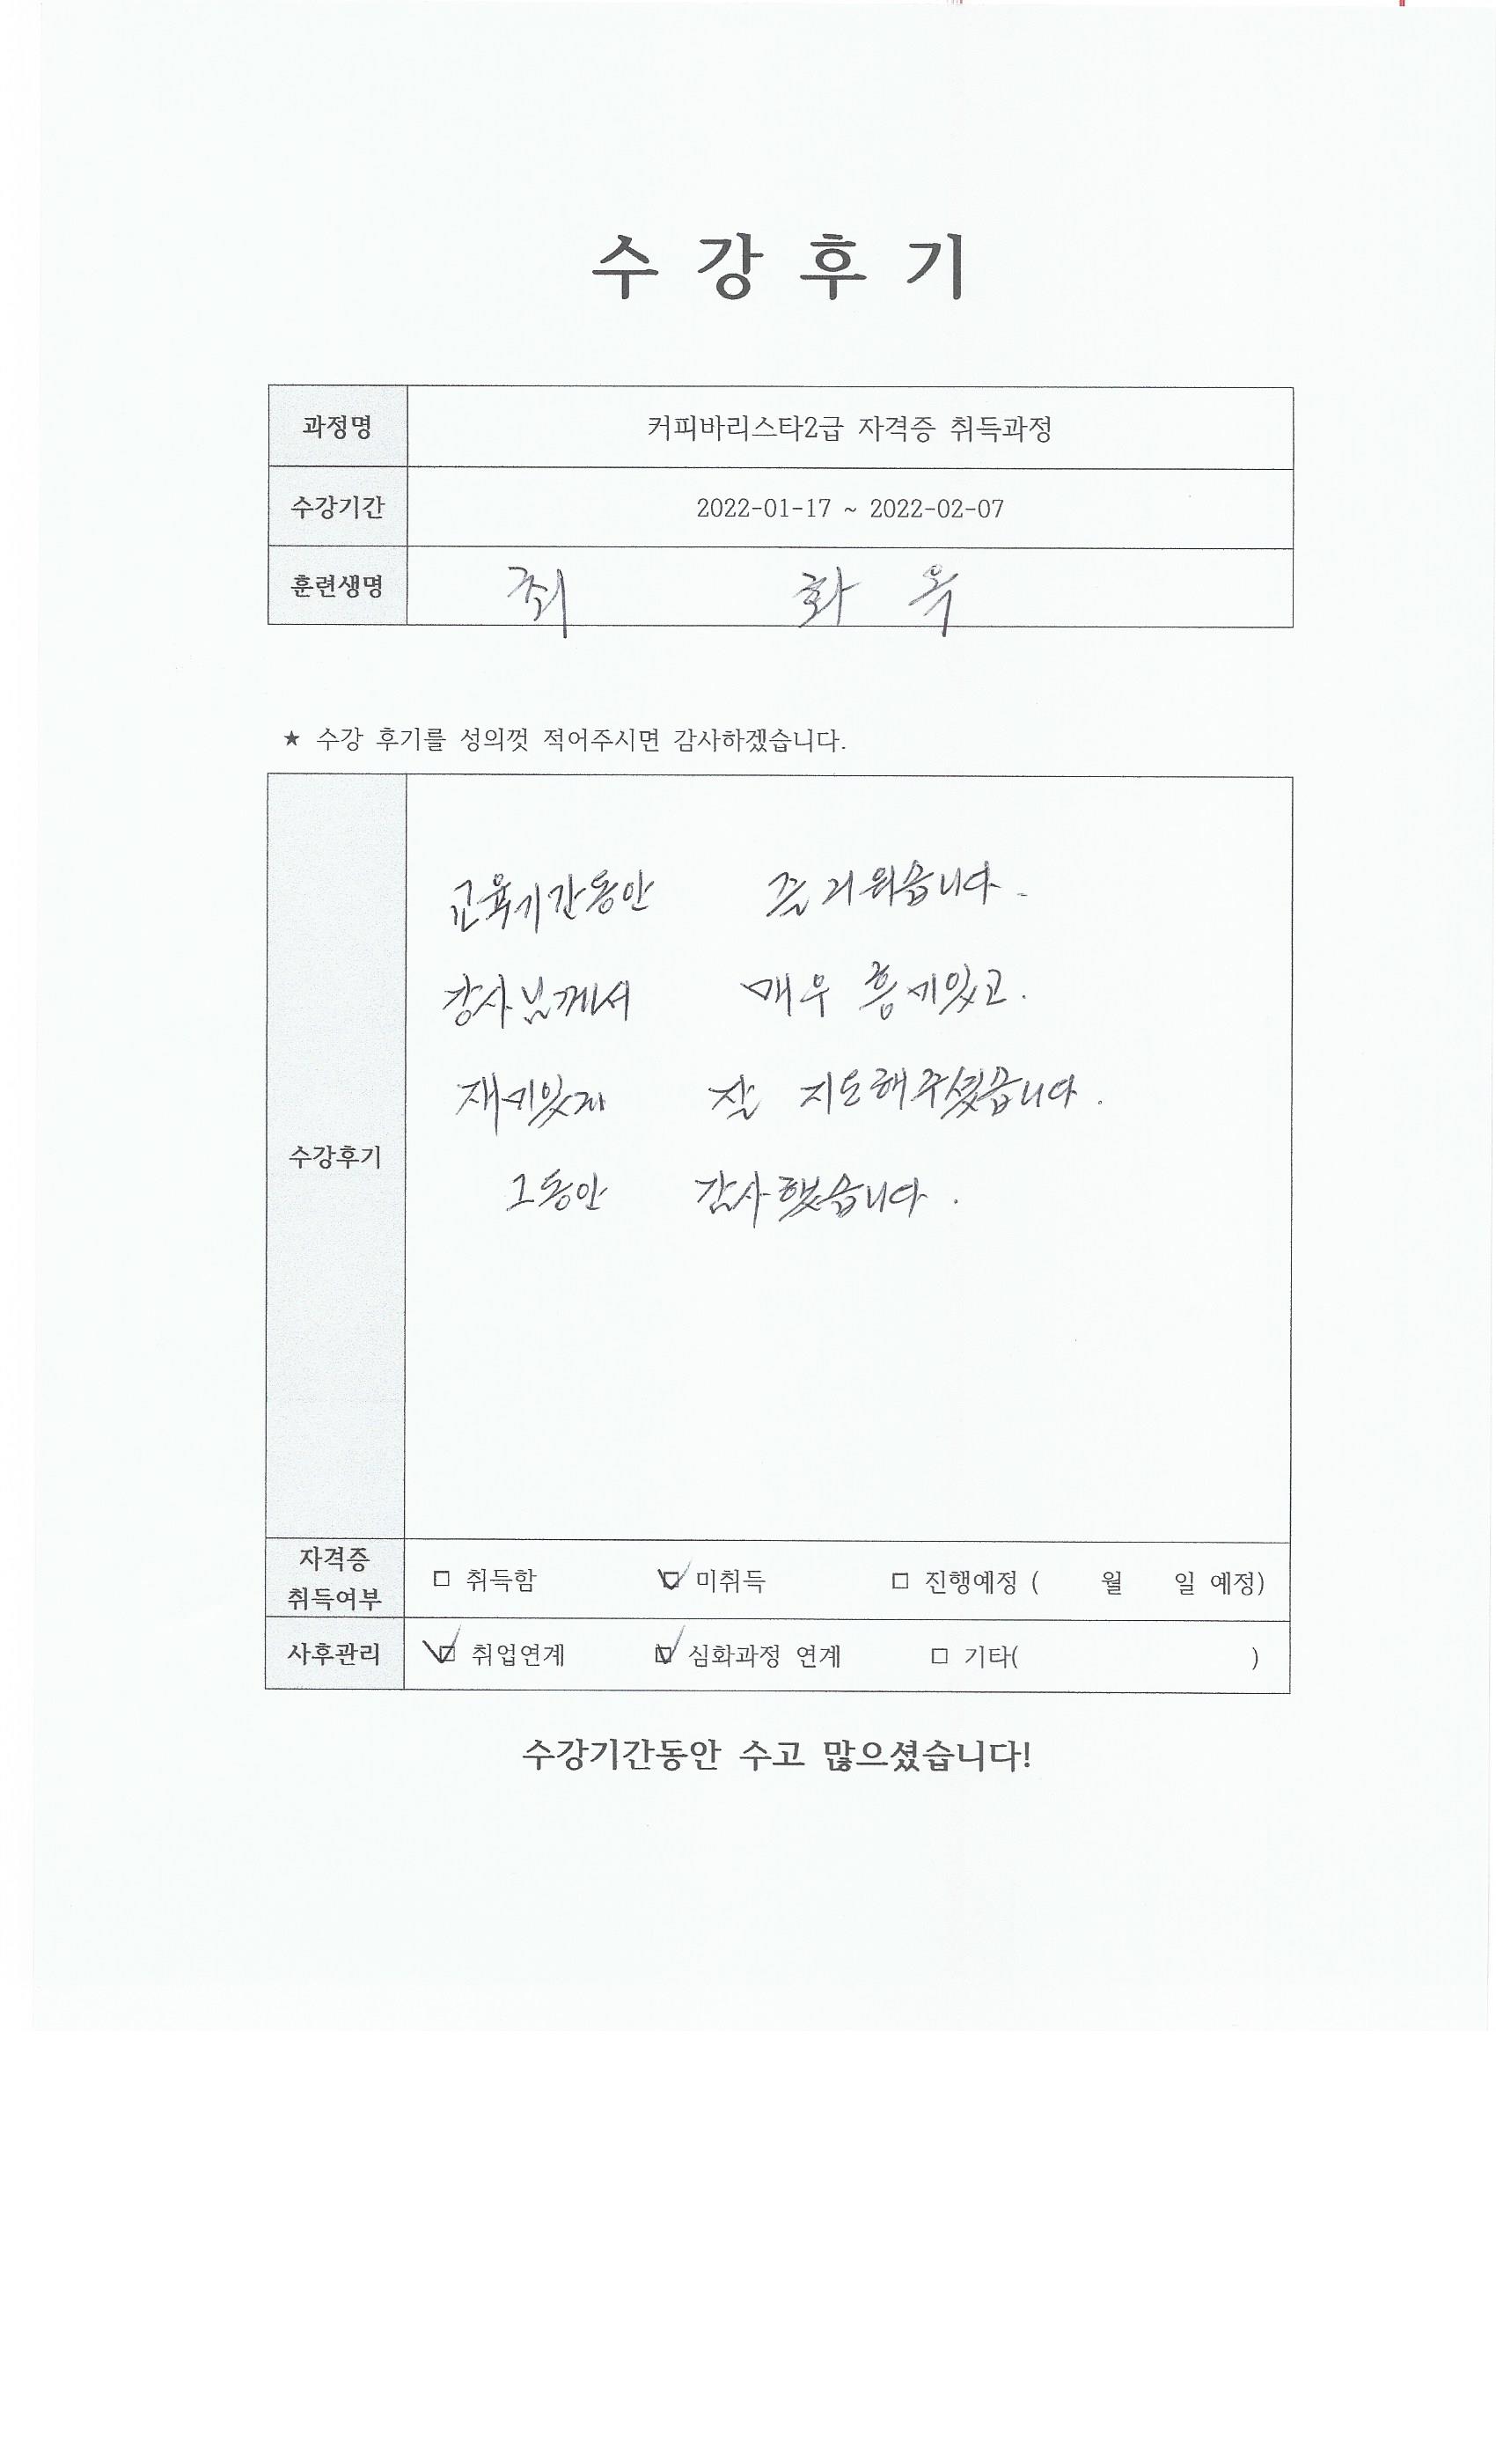 수 강 후 기
과정명 커피바리스타2급 자격증 취득과정
수강기간 2022-01-17 ~ 2022-02-07
훈련생명 최 화 옥
★ 수강 후기를 성의껏 적어주시면 감사하겠습니다.
교육기간동안 즐거워습니다.
강사님께서 매우 흥미있고.
수강후기
재미있게 잘 지도해주셨습니다.
그동안 감사했습니다.
자격증
취득여부
□ 취득함 ☑ 미취득 □ 진행예정 ( 월 일 예정)
사후관리 ☑ 취업연계 ☑ 심화과정 연계 □ 기타( )
수강기간동안 수고 많으셨습니다!